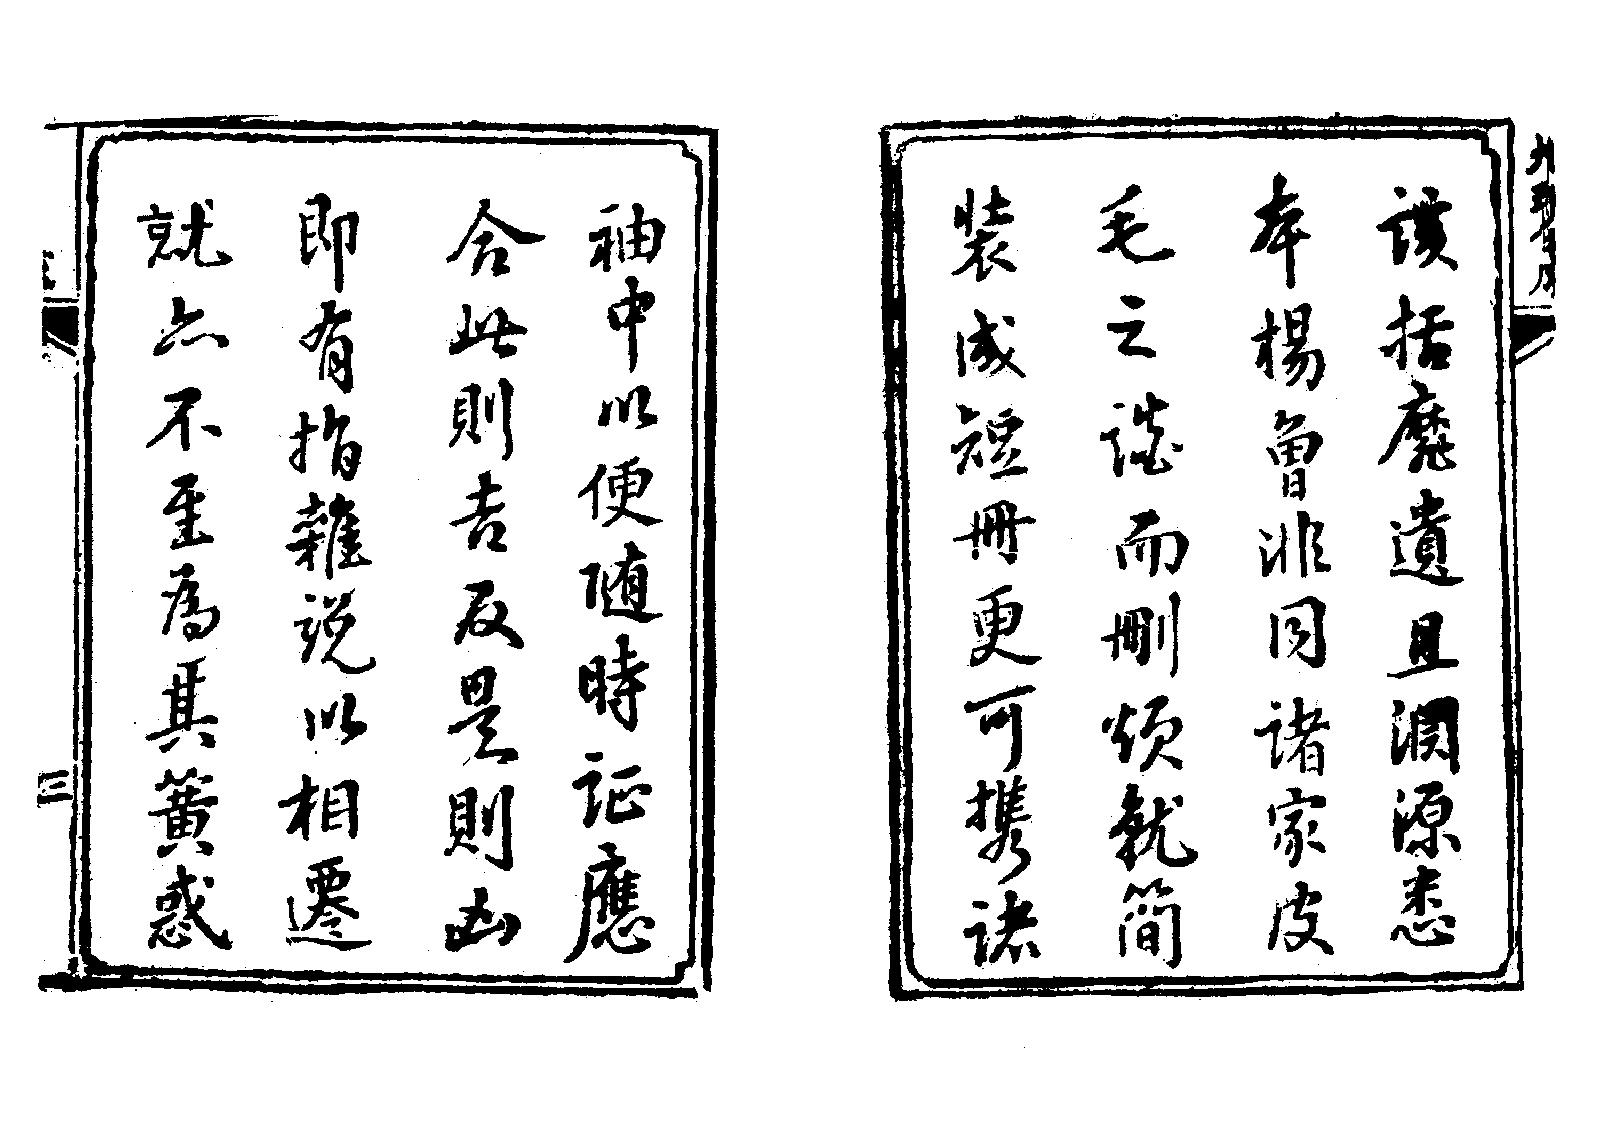 謨括靡遺且淵源悉
本楊曾非同諸家皮
毛之談而刪煩就簡
裝成短冊更可攜諸
袖中以便随時証應
合此則吉反是則凶
即有指雜説以相遷
就亦不至為其簧惑
三